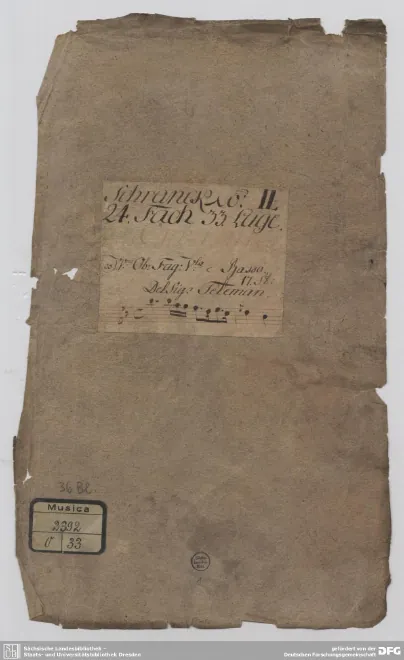 Schranck No: II.
24. Fach 33 Lage.
VV.ni Ob: Fag: V.la e Basso.
17. St:
Del Sig.r Teleman.
36 Bl.
Musica
2392
O 33
Sächsische Landesbibliothek –
Staats- und Universitätsbibliothek Dresden
gefördert von der
Deutschen Forschungsgemeinschaft
DFG